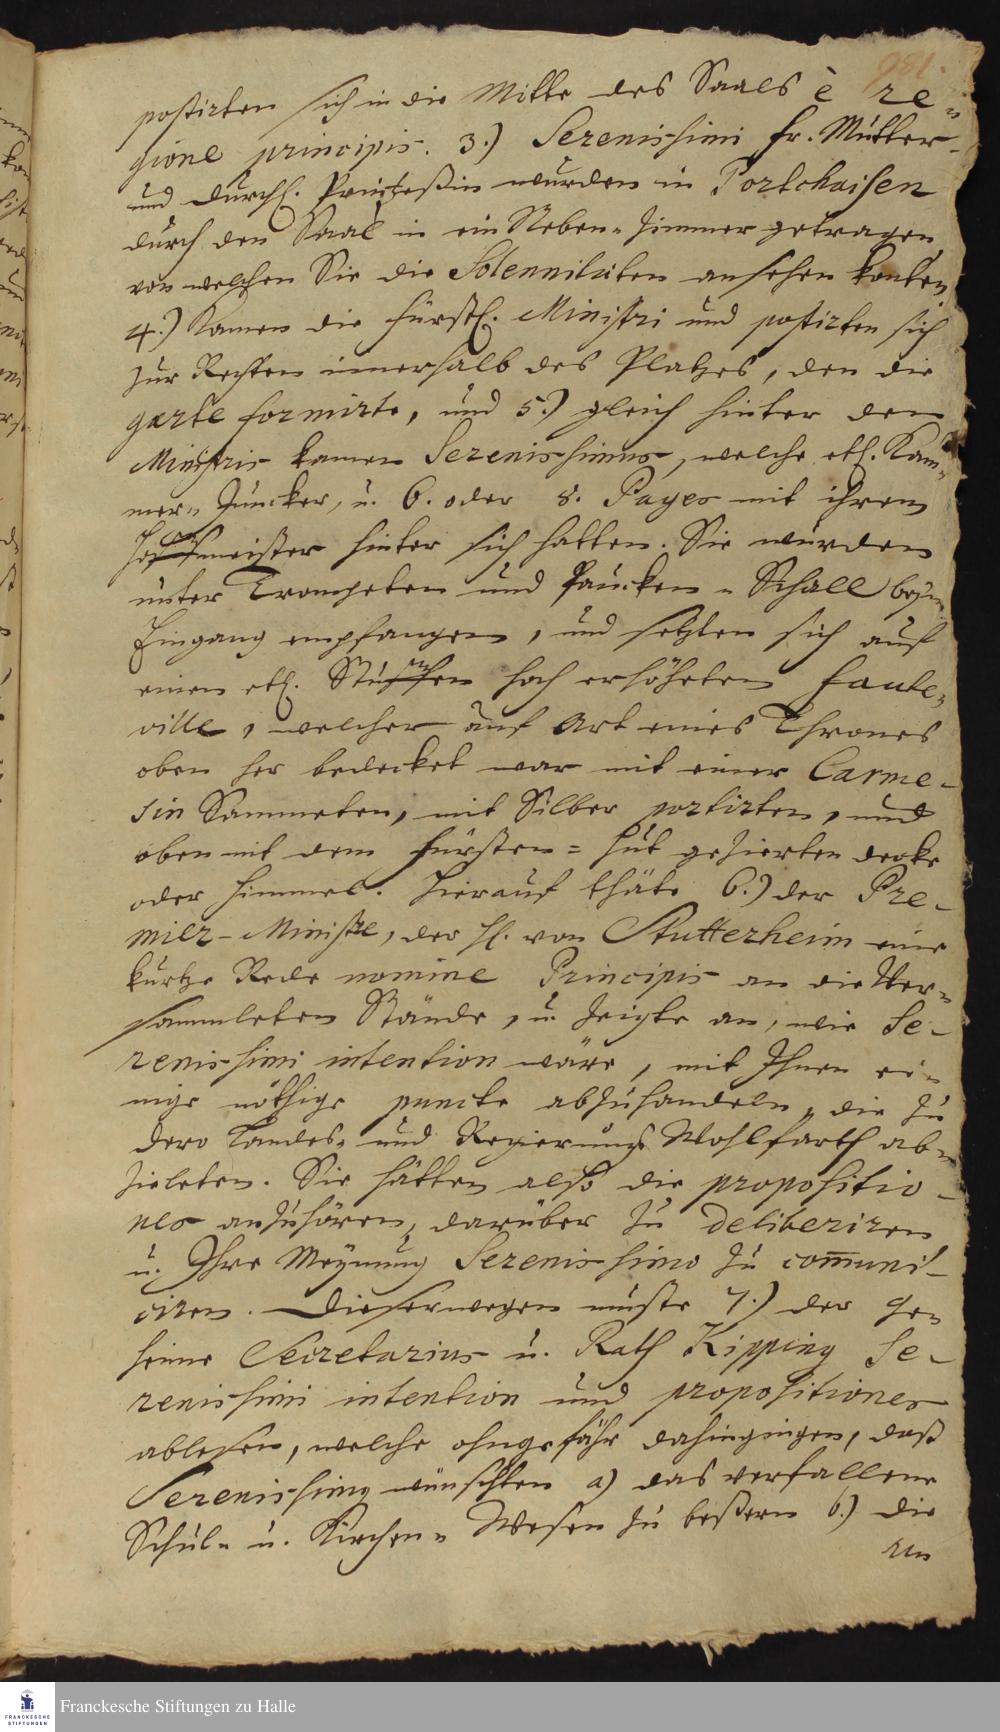 981.
postirten sich in die Mitte des Saals è re-
gione principis. 3.) Serenissimi Fr. Mutter-
und Durchl. Printzeßin wurden in Portchaisen
durch den Saal in ein Neben-Zimmer getragen,
von welchen Sie die Solennitäten ansehen konten,
4.) Kamen die Fürstl. Ministri und postirten sich
zur Rechten innerhalb des Platzes, den die
garde formirte, und 5.) gleich hinter den
Ministris kamen Serenissimus, welche etl. Kam-
mer-Juncker, u. 6. oder 8. Pages mit ihrem
Hoffmeister hinter sich hatten. Sie wurden
unter Trompeten und Paucken-Schall beym
Eingang empfangen, und setzten sich auf
einen etl. Stuffen hoch erhöheten Faute-
ville, welcher auf Art eines Thrones
oben her bedecket war mit einer Carme-
sin Sammeten, mit Silber portirten, und
oben mit dem Fürsten-Hut gezierten decke
oder Himmel. Hierauf thäte 6.) der Pre-
mier-Ministre, der H. von Stutterheim eine
kurtze Rede nomine Principis an die Ver-
sammleten Stände, u. zeigte an, wie Se-
renissimi intention wäre, mit Ihnen ei-
nige nöthige puncte abzuhandeln, die zu
dero Landes- und Regierungs Wohlfarth ab-
zieleten. Sie hätten also die propositio-
nes anzuhören, darüber zu deliberiren
u. Ihre Meynung Serenissimo zu com̅uni-
ciren. Dieserwegen muste 7.) der Ge-
heime Secretarius u. Rath Kipping Se-
renissimi intention und propositiones
ablesen, welche ohngefähr dahingingen, daß
Serenissimus wünschten a) das verfallene
Schul- u. Kirchen-Wesen zu beßern b.) die
Franckesche Stiftungen zu Halle
FRANCKESCHE
STIFTUNGEN